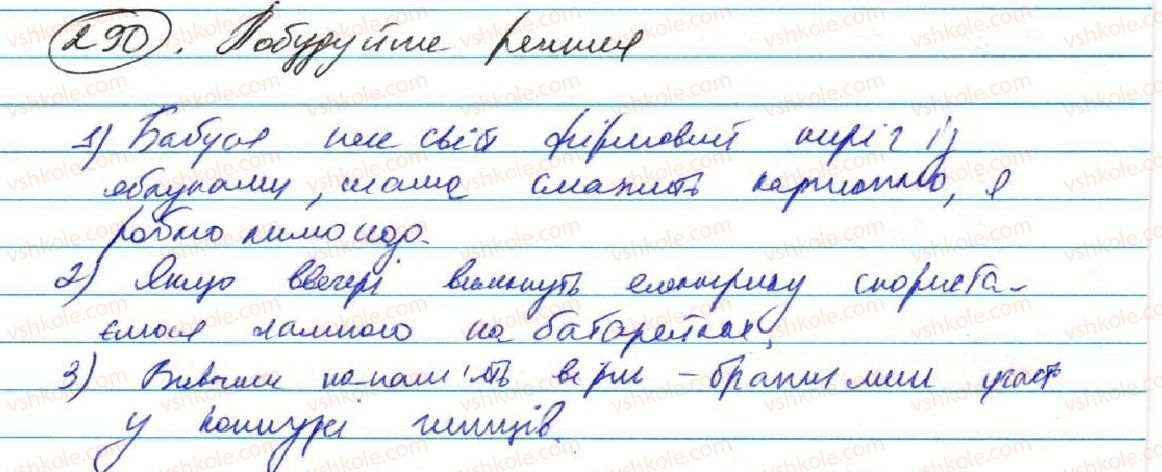 290. Побудуйте речення
1) Бабуся пече свій фірмовий пиріг із
яблуками, мама смажить картоплю, я
роблю лимонад.
2) Якщо ввечері вимкнуть електрику скориста-
ємося лампою на батарейках.
3) Вивчиш на-пам'ять вірш – братимеш участь
у конкурсі читців.